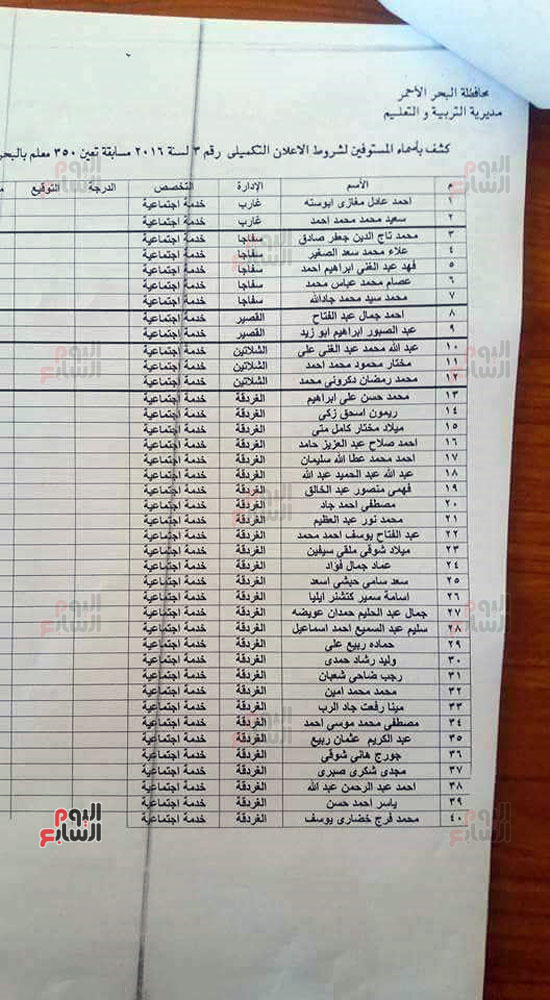 محافظة البحر الأحمر
مديرية التربية و التعليم
كشف بأسماء المستوفين لشروط الاعلان التكميلى رقم ٣ لسنة ٢٠١٦ مسابقة تعين ٣٥٠ معلم بالبحر
م الأسم الإدارة التخصص الدرجة التوقيع
١ احمد عادل مغازى ابوسته غارب خدمة اجتماعية
٢ سعيد محمد محمد احمد غارب خدمة اجتماعية
٣ محمد تاج الدين جعفر صادق سفاجا خدمة اجتماعية
٤ علاء محمد سعد الصغير سفاجا خدمة اجتماعية
٥ فهد عبد الغنى ابراهيم احمد سفاجا خدمة اجتماعية
٦ عصام محمد عباس محمد سفاجا خدمة اجتماعية
٧ محمد سيد محمد جادالله سفاجا خدمة اجتماعية
٨ احمد جمال عبد الفتاح القصير خدمة اجتماعية
٩ عبد الصبور ابراهيم ابو زيد القصير خدمة اجتماعية
١٠ عبد الله محمد عبد الغنى على الشلاتين خدمة اجتماعية
١١ مختار محمود محمد احمد الشلاتين خدمة اجتماعية
١٢ محمد رمضان دكرونى محمد الشلاتين خدمة اجتماعية
١٣ محمد حسن على ابراهيم الغردقة خدمة اجتماعية
١٤ ريمون اسحق زكى الغردقة خدمة اجتماعية
١٥ ميلاد مختار كامل متى الغردقة خدمة اجتماعية
١٦ احمد صلاح عبد العزيز حامد الغردقة خدمة اجتماعية
١٧ احمد محمد عطا الله سليمان الغردقة خدمة اجتماعية
١٨ عبد الله عبد الحميد عبد الله الغردقة خدمة اجتماعية
١٩ فهمى منصور عبد الخالق الغردقة خدمة اجتماعية
٢٠ مصطفى احمد جاد الغردقة خدمة اجتماعية
٢١ محمد نور عبد العظيم الغردقة خدمة اجتماعية
٢٢ عبد الفتاح يوسف احمد محمد الغردقة خدمة اجتماعية
٢٣ ميلاد شوقى ملقى سيفين الغردقة خدمة اجتماعية
٢٤ عماد جمال فؤاد الغردقة خدمة اجتماعية
٢٥ سعد سامى حبشى اسعد الغردقة خدمة اجتماعية
٢٦ اسامة سمير كتشنر ايليا الغردقة خدمة اجتماعية
٢٧ جمال عبد الحليم حمدان عويضه الغردقة خدمة اجتماعية
٢٨ سليم عبد السميع احمد اسماعيل الغردقة خدمة اجتماعية
٢٩ حماده ربيع على الغردقة خدمة اجتماعية
٣٠ وليد رشاد حمدى الغردقة خدمة اجتماعية
٣١ رجب ضاحى شعبان الغردقة خدمة اجتماعية
٣٢ محمد محمد امين الغردقة خدمة اجتماعية
٣٣ مينا رفعت جاد الرب الغردقة خدمة اجتماعية
٣٤ مصطفى محمد موسى احمد الغردقة خدمة اجتماعية
٣٥ عبد الكريم عثمان ربيع الغردقة خدمة اجتماعية
٣٦ جورج هانى شوقى الغردقة خدمة اجتماعية
٣٧ مجدى شكرى صبرى الغردقة خدمة اجتماعية
٣٨ احمد عبد الرحمن عبد الله الغردقة خدمة اجتماعية
٣٩ ياسر احمد حسن الغردقة خدمة اجتماعية
٤٠ محمد فرج خضارى يوسف الغردقة خدمة اجتماعية
اليوم السابع